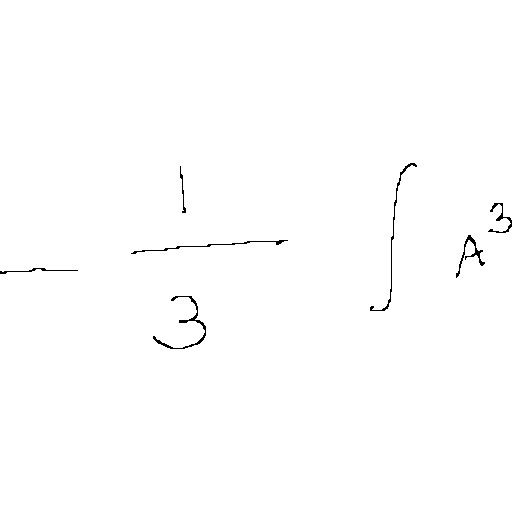 $-\frac{1}{3}\int A^3$